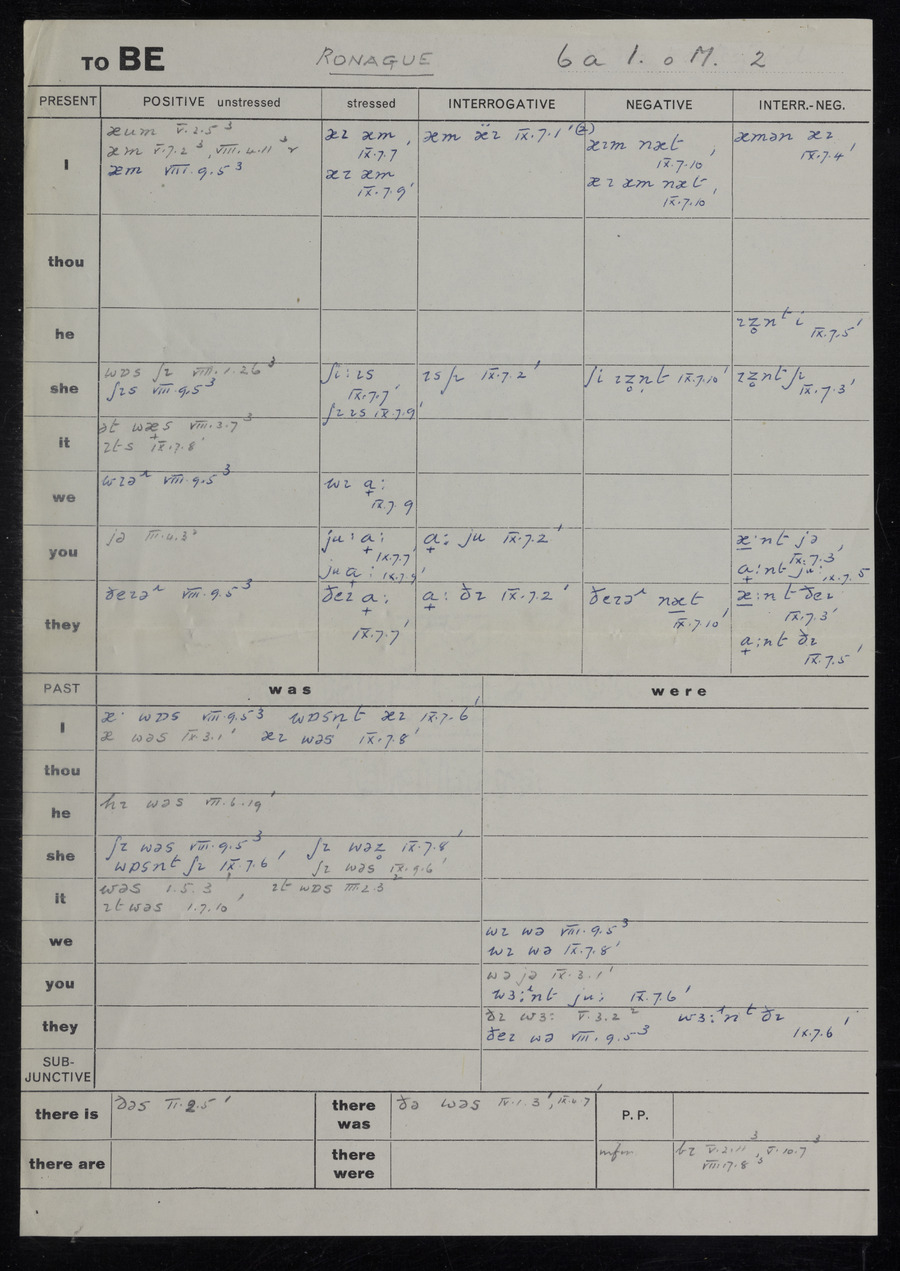 TO BE RONAGUE 6 a 1. o M. 2
PRESENT POSITIVE unstressed stressed INTERROGATIVE NEGATIVE INTERR.-NEG.
I
æum V.2.5³
æm V.7.2³, VIII.4.11³
æm VIII.9.5³
æɪ æm IX.7.7'
æɪ æm IX.7.9'
æm æɪ IX.7.1' (2)
æɪm næt IX.7.10'
æɪ æm næt IX.7.10'
æmən æɪ IX.7.4'
thou
he
ɪz̥nt i IX.7.5'
she
wɒs ʃɪ VIII.1.26³
ʃɪs VIII.9.5³
ʃi:ɪs IX.7.7'
ʃɪ ɪs IX.7.9'
ɪs ʃɪ IX.7.2'
ʃi ɪz̥nt IX.7.10'
ɪz̥nt ʃɪ IX.7.3'
it
ət wæs VIII.3.7³
ɪts IX.7.8'
we
wɪəʴ VIII.9.5³
wɪ a̟: IX.7.9
you
jə III.4.3²
ju: a̟: IX.7.7'
ju a̟: IX.7.9'
a̟: ju IX.7.2'
æ̠·nt jə IX.7.3'
a̟:nt ju: IX.7.5
they
ðeɪəʴ VIII.9.5³
ðeɪ a̟: IX.7.7'
a̟: ðɪ IX.7.2'
ðeɪəʴ næt IX.7.10'
æ̠:nt ðeɪ IX.7.3'
a̟:nt ðɪ IX.7.5'
PAST was were
I
æ· wɒs VIII.9.5³ wɒsn̩t æɪ IX.7.6'
æ wəs IX.3.1' æɪ wəs IX.7.8'
thou
he
hɪ wəs VII.6.19'
she
ʃɪ wəs VIII.9.5³ ʃɪ wəz̥ IX.7.8'
wɒsnt ʃɪ IX.7.6' ʃɪ wəs IX.9.6'
it
wəs 1.5.3', ɪt wɒs III.2.3²
ɪt wəs 1.7.10'
we
wɪ wə VIII.9.5³
wɪ wə IX.7.8'
you
wə jə IX.3.1'
wɜ:ʴnt ju: IX.7.6'
they
ðɪ wɜ: V.3.2² wɜ:ʴnt ðɪ IX.7.6'
ðeɪ wə VIII.9.5³
SUB-
JUNCTIVE
there is ðəs II.2.5'
there was ðə wəs IV.1.3', IX.6.7'
P.P.
there are
there were
infin. bɪ V.2.11³, V.10.7³
VIII.7.8³